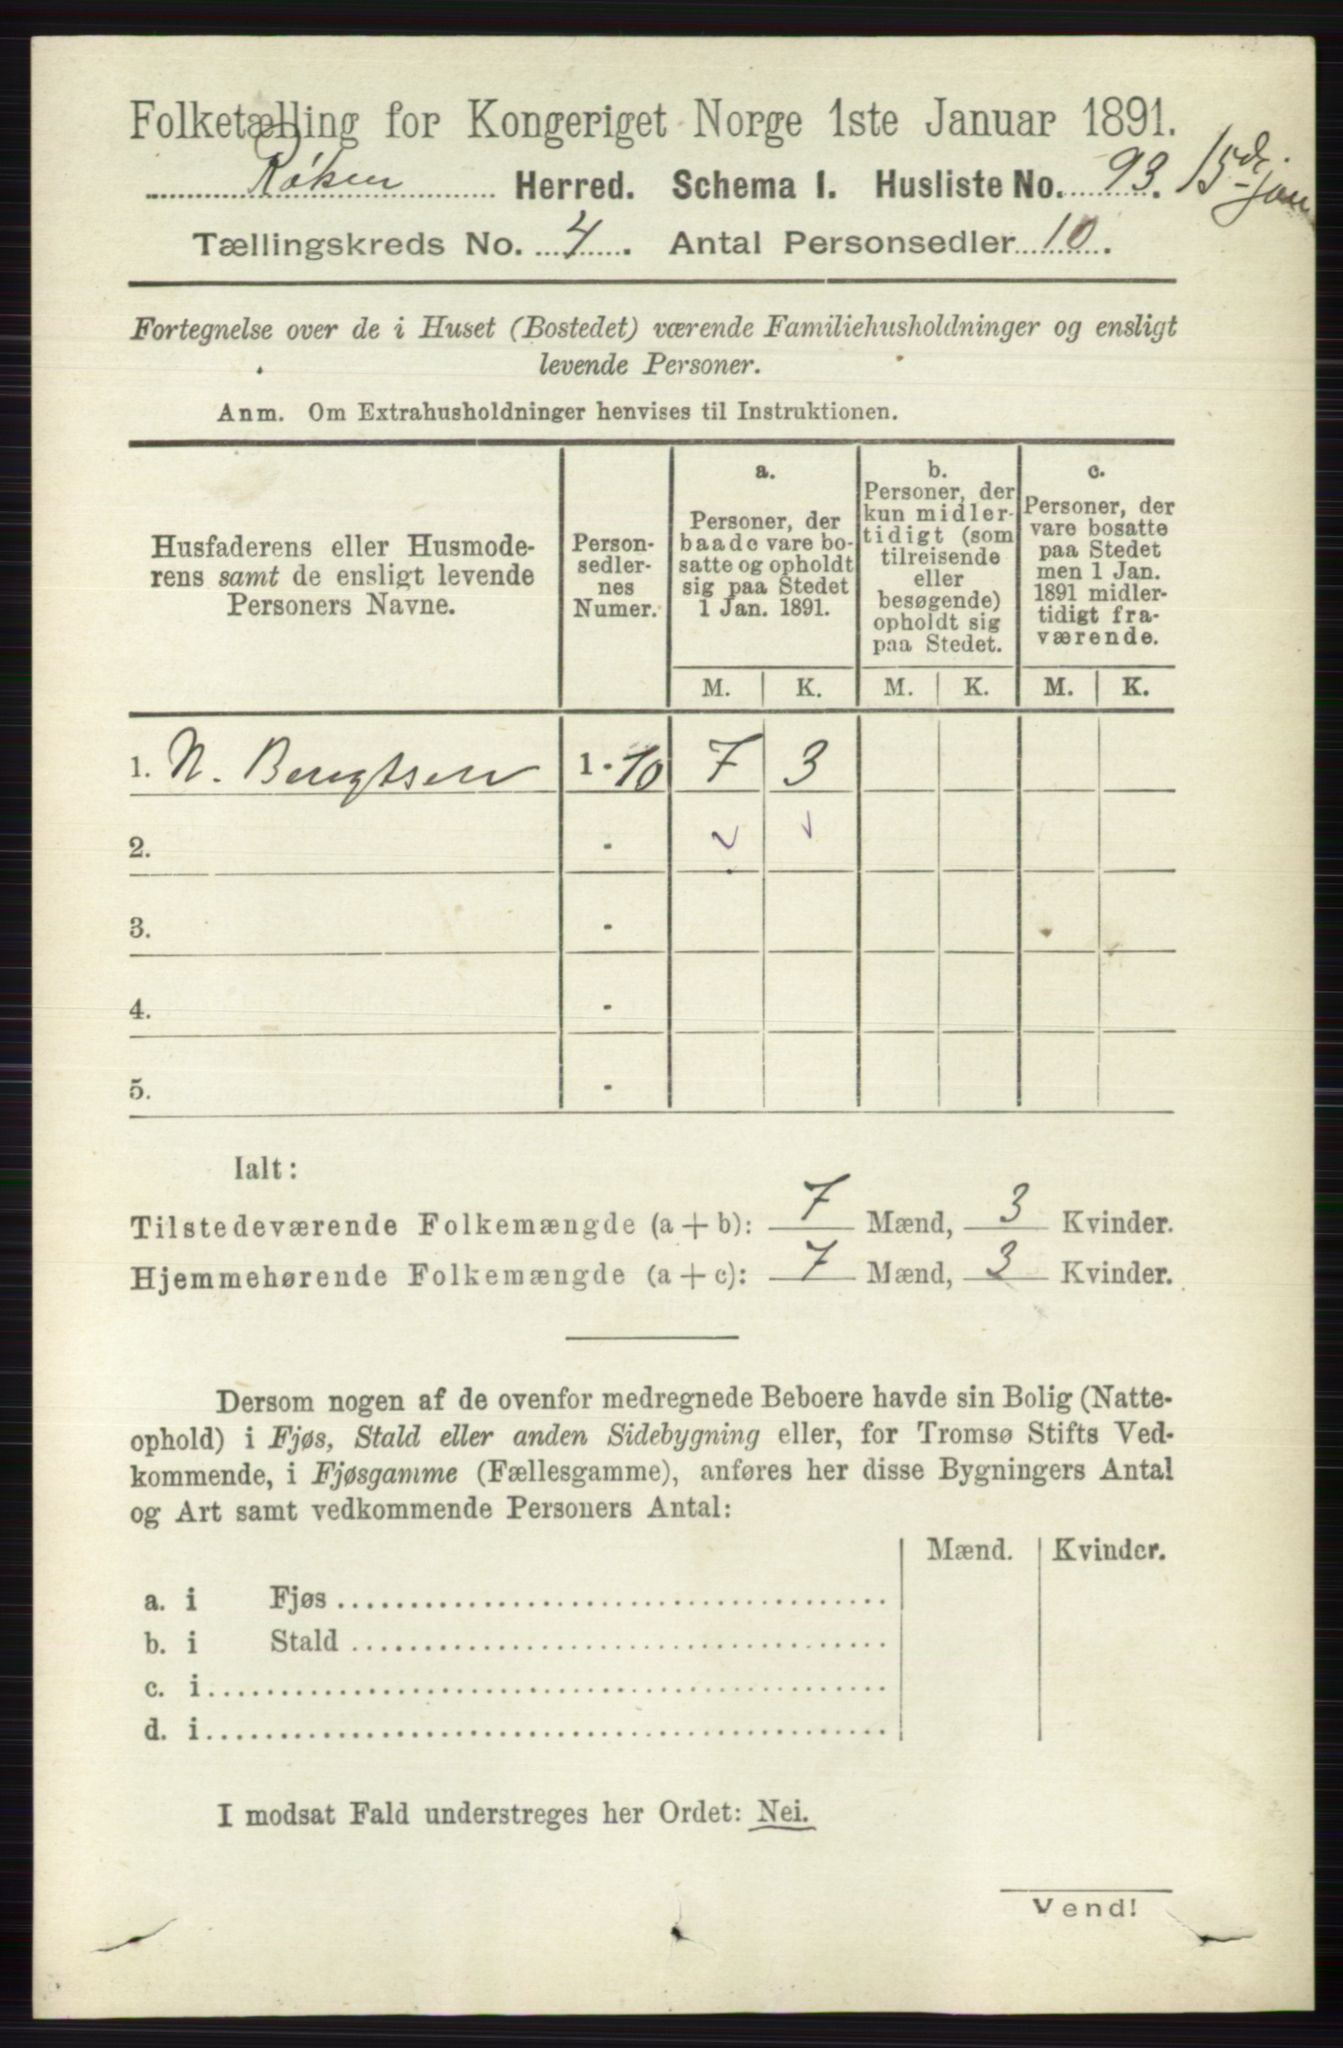 Folketælling for Kongeriget Norge 1ste Januar 1891.
Røken Herred. Schema 1. Husliste No. 93. 15de jan
Tællingskreds No. 4. Antal Personsedler 10.
Fortegnelse over de i Huset (Bostedet) værende Familiehusholdninger og ensligt
levende Personer.
Anm. Om Extrahusholdninger henvises til Instruktionen.
Husfaderens eller Husmode-
rens samt de ensligt levende
Personers Navne.
Person-
sedler-
nes
Numer.
a.
Personer, der
baade vare bo-
satte og opholdt
sig paa Stedet
1 Jan. 1891.
b.
Personer, der
kun midler-
tidigt (som
tilreisende
eller
besøgende)
opholdt sig
paa Stedet.
c.
Personer, der
vare bosatte
paa Stedet
men 1 Jan.
1891 midler-
tidigt fra-
værende.
M. K. M. K. M. K.
1. N. Bengtsen 1-10 7 3
2. -
3. -
4. -
5. -
Ialt:
Tilstedeværende Folkemængde (a + b): 7 Mænd, 3 Kvinder.
Hjemmehørende Folkemængde (a + c): 7 Mænd, 3 Kvinder.
Dersom nogen af de ovenfor medregnede Beboere havde sin Bolig (Natte-
ophold) i Fjøs, Stald eller anden Sidebygning eller, for Tromsø Stifts Ved-
kommende, i Fjøsgamme (Fællesgamme), anføres her disse Bygningers Antal
og Art samt vedkommende Personers Antal:
Mænd. Kvinder.
a. i Fjøs
b. i Stald
c. i
d. i
I modsat Fald understreges her Ordet: Nei.
Vend!